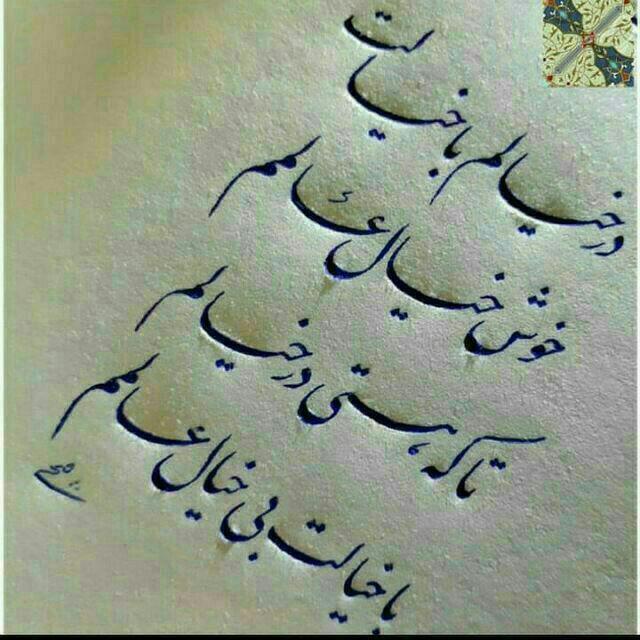 در خیالم با خیالت
خوش خیال عالمم
تا که هستی در خیالم
با خیالت بی خیال عالمم